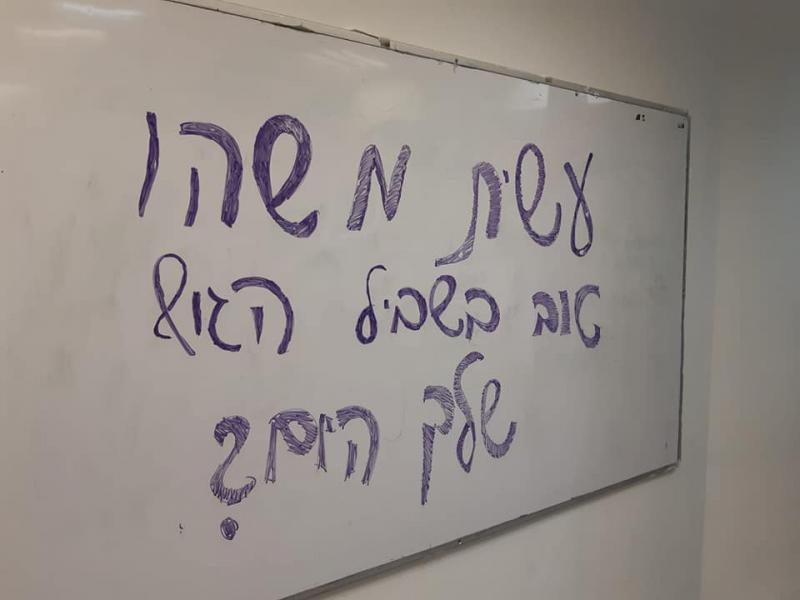 עשית משהו
טוב בשביל הגוף
שלך היום?